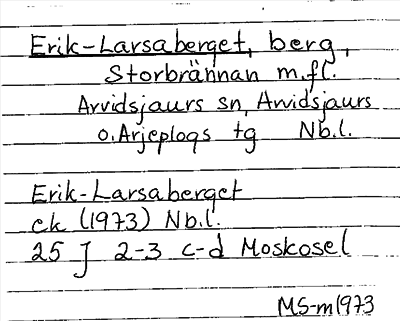 Erik-Larsaberget, berg,
Storbrännan m.fl.
Arvidsjaurs sn, Arvidsjaurs
o. Arjeplogs tg Nb.l.
Erik-Larsaberget
ek (1973) Nb.l.
25 J 2-3 c-d Moskosel
MS-m1973